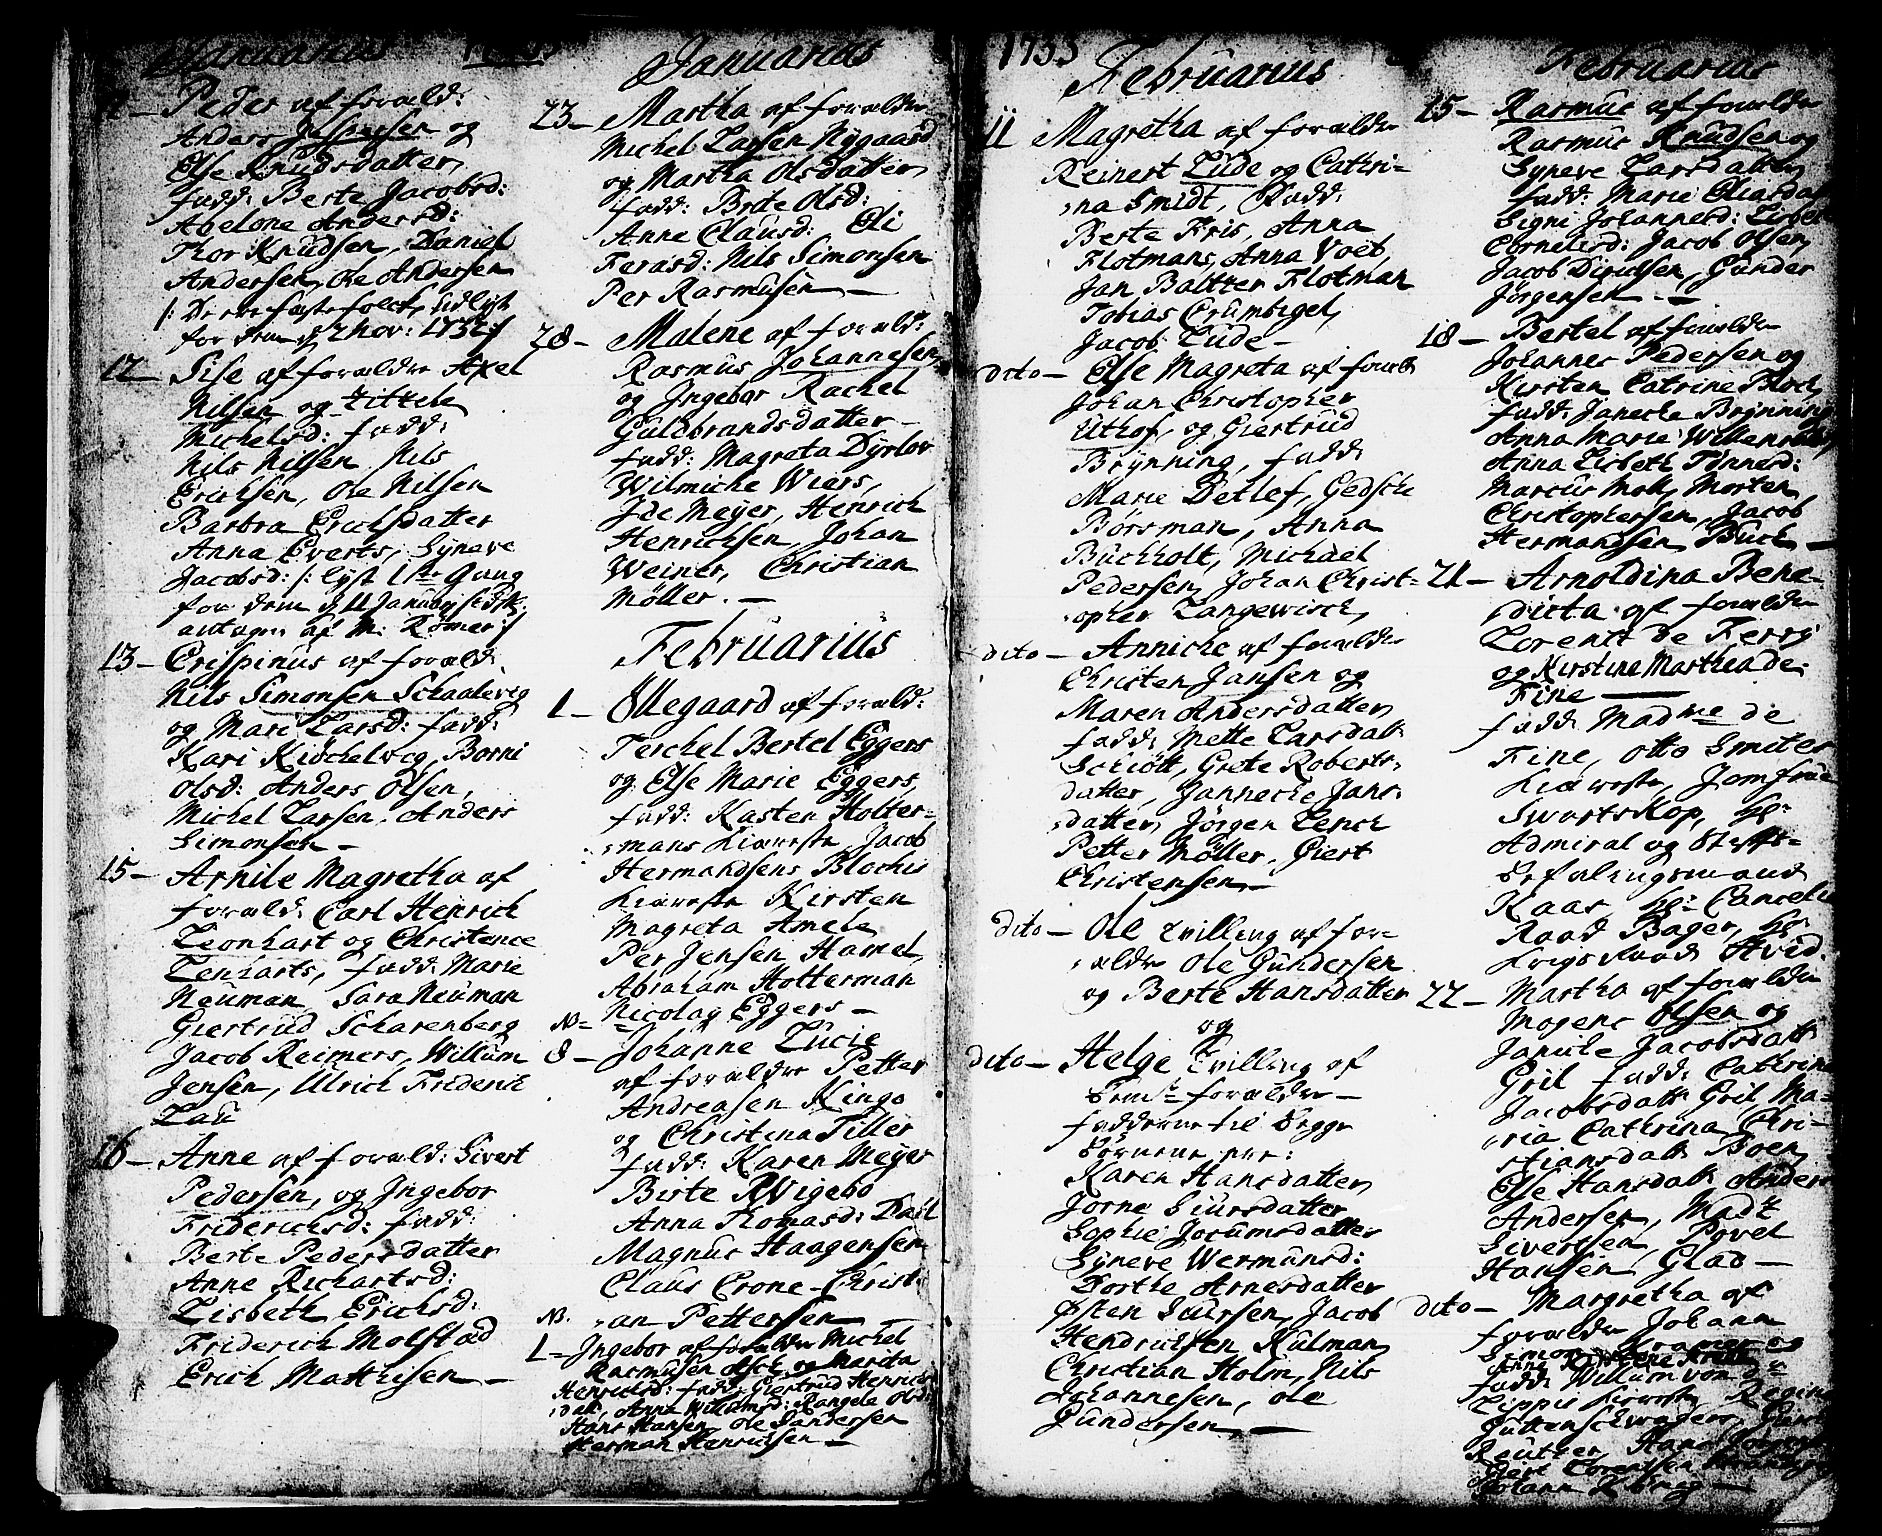 Januarius
Peder af foræld:
Anders Jespersen og
Else Knudsdatter,
fadd: Berte Jacobsd:
Abelone Andersd:
Thor Knudsen, Daniel
Andersen, Ole Andersen
/: De ere fæstefolck, Udlyst
for dem d 2 Nov: 1732 :/
12 – Sise af forældre Axel
Nilsen og Zitzele
Michelsd: fadd:
Nils Nilsen Nils
Erichsen, Ole Nilsen
Barbra Erichsdatter
Anna Everts, Syneve
Jacobsd: /: lyst 1ste Gang
for dem d 11 Januarij
antagen af M: Rømer :/
13 – Crispinus af foræld:
Nils Simonsen Schaalevig
og Mari Larsd: fadd:
Kari Kidchelvig, Borni
Olsd: Anders Olsen,
Michel Larsen, Anders
Simonsen –
15 – Arnile Magretha af
foræld: Carl Henrich
Leonhart og Christence
Lenharts, fadd: Marie
Neuman, Sara Neuman
Giertrud Scharenberg
Jacob Reimers, Willum
Jensen, Ulrich Friderich
Lau
16 – Anne af foræld: Sivert
Pedersen, og Ingebor
Friderichsd: fadd:
Berte Pedersdatter
Anne Richartsd:
Lisbeth Erichsd:
Friderich Molstad
Erich Mathisen –
Januarius
23 – Martha af forældre
Michel Larsen Nygaard
og Martha Olsdatter,
fadd: Brite Olsd:
Anne Clausd: Eli
Ferasd: Nils Simonsen
Per Rasmusen –
28 – Malene af foræld:
Rasmus Johannesen,
og Ingebor Rachel
Guldbrandsdatter –
fadd: Magreta Dyrlov
Wilmiche Wiers,
Ide Meyer, Henrich
Henrichsen, Johan
Weiner, Christian
Møller. –
Februarius
1 – Ollegaard af foræld:
Terchel Bertel Eggers
og Else Marie Eggers,
fadd: Kasten Holter=
mans Kiæreste, Jacob
Hermandsens Blochis
Kiæreste Kirsten
Magreta Amele
Per Jensen Hamel,
Abraham Holterman
Nicolay Eggers –
8 – Johanne Lucie
af forældre Petter
Andreasen Kingo
og Christina Tiller
fadd: Karen Meyer
Birte Rwigebo
Anna Thomasd: Dahl
Magnus Haagensen
Claus Crone Christi
an Pettersen –
NB.
1 – Ingebor af forældre Michel
Rasmusen Olsch og Marita
Henrichsd: fadd: Giertrud Henrichs
dat:, Anna Willumsd: Rangele Olsd:
Hans Hansen, Ole Gundersen
Herman Henrichsen –
1733
Februarius
11 Magretha af forældre
Reinert Lude og Cathri=
na Smidt, Fadd:
Berte Fris, Anna
Flotmans, Anna Voet,
Jan Baltzer Flotman
Tobias Crumbigel,
Jacob Lude –
dito – Else Magreta af foræld
Johan Christopher
Uthof, og Giertrud
Brÿnning, fadd:
Marie Detlef, Gedsche
Børsman, Anna
Buchholt, Michael
Pedersen, Johan Christ=
opher Langewisch,
dito – Anniche af forældre
Christen Jansen og
Maren Andersdatter,
fadd: Mette Larsdatt
Schiøtt, Grete Roberts=
datter, Jannecke Jans=
datter, Jørgen Lenck
Petter Møller, Giert
Christensen –
dito – Ole tvilling af for=
ældre Ole Gundersen
og Berte Hansdatter
og
dito – Helge tvilling af
bemte forældre –
fadderne til begge
børnene ere:
Karen Hansdatter,
Jorne Siursdatter
Sophie Jocumsdatter
Syneve Wermunsd:
Dorthe Arnesdatter
Østen Siursen, Jacob
Hendrichsen Kulman,
Christian Holm, Nils
Johannesen, Ole
Gundersen –
Februarius
15 – Rasmus af forældre
Rasmus Knudsen og
Syneve Larsdatter,
fadd: Marie
Signi Johannesd: Lisbet
Cornelisd: Jacob Olsen,
Jacob Dirichsen, Gunder
Jørgensen. –
18 – Bertel af forældre
Johannes Pedersen og
Kirsten Catrine Bloch,
fadd: Janecke Brÿnning
Anna Marie
Anna Lisbeth Tønnesd:
Marcus Moll, Morten,
Christophersen, Jacob
Hermandsen Buch –
21 – Arnoldina Bene=
dicta af forældre
Lorentz de Ferry
og Kirstine Marthea de
Fine –
fadd: Madme de
Fine, Otto Smiters
Kiæreste, Jomfrue
Swartskop, Hr:
Admiral og Stifts=
befalingsmand
Kaas, Hr: Cancelie
Raad Bager, Hr:
Krigs Raad Hvid.
22 – Martha af forældre
Mogens Olsen og
Janike Jacobsdatt
Gril fadd: Cathrina
Jacobsdatt Gril, Ma=
ria Cathrina Chri=
stiansdatt Boen,
Else Hansdatt, Anders
Andersen, Madtz
Sivertsen, Povel
Hansen, Glad –
dito – Margretha af
forældre Johann
Simon Kramer og
fadd: Willum von d=
Lippis Kiæreste, Regina
Reuther, Hans
Johann